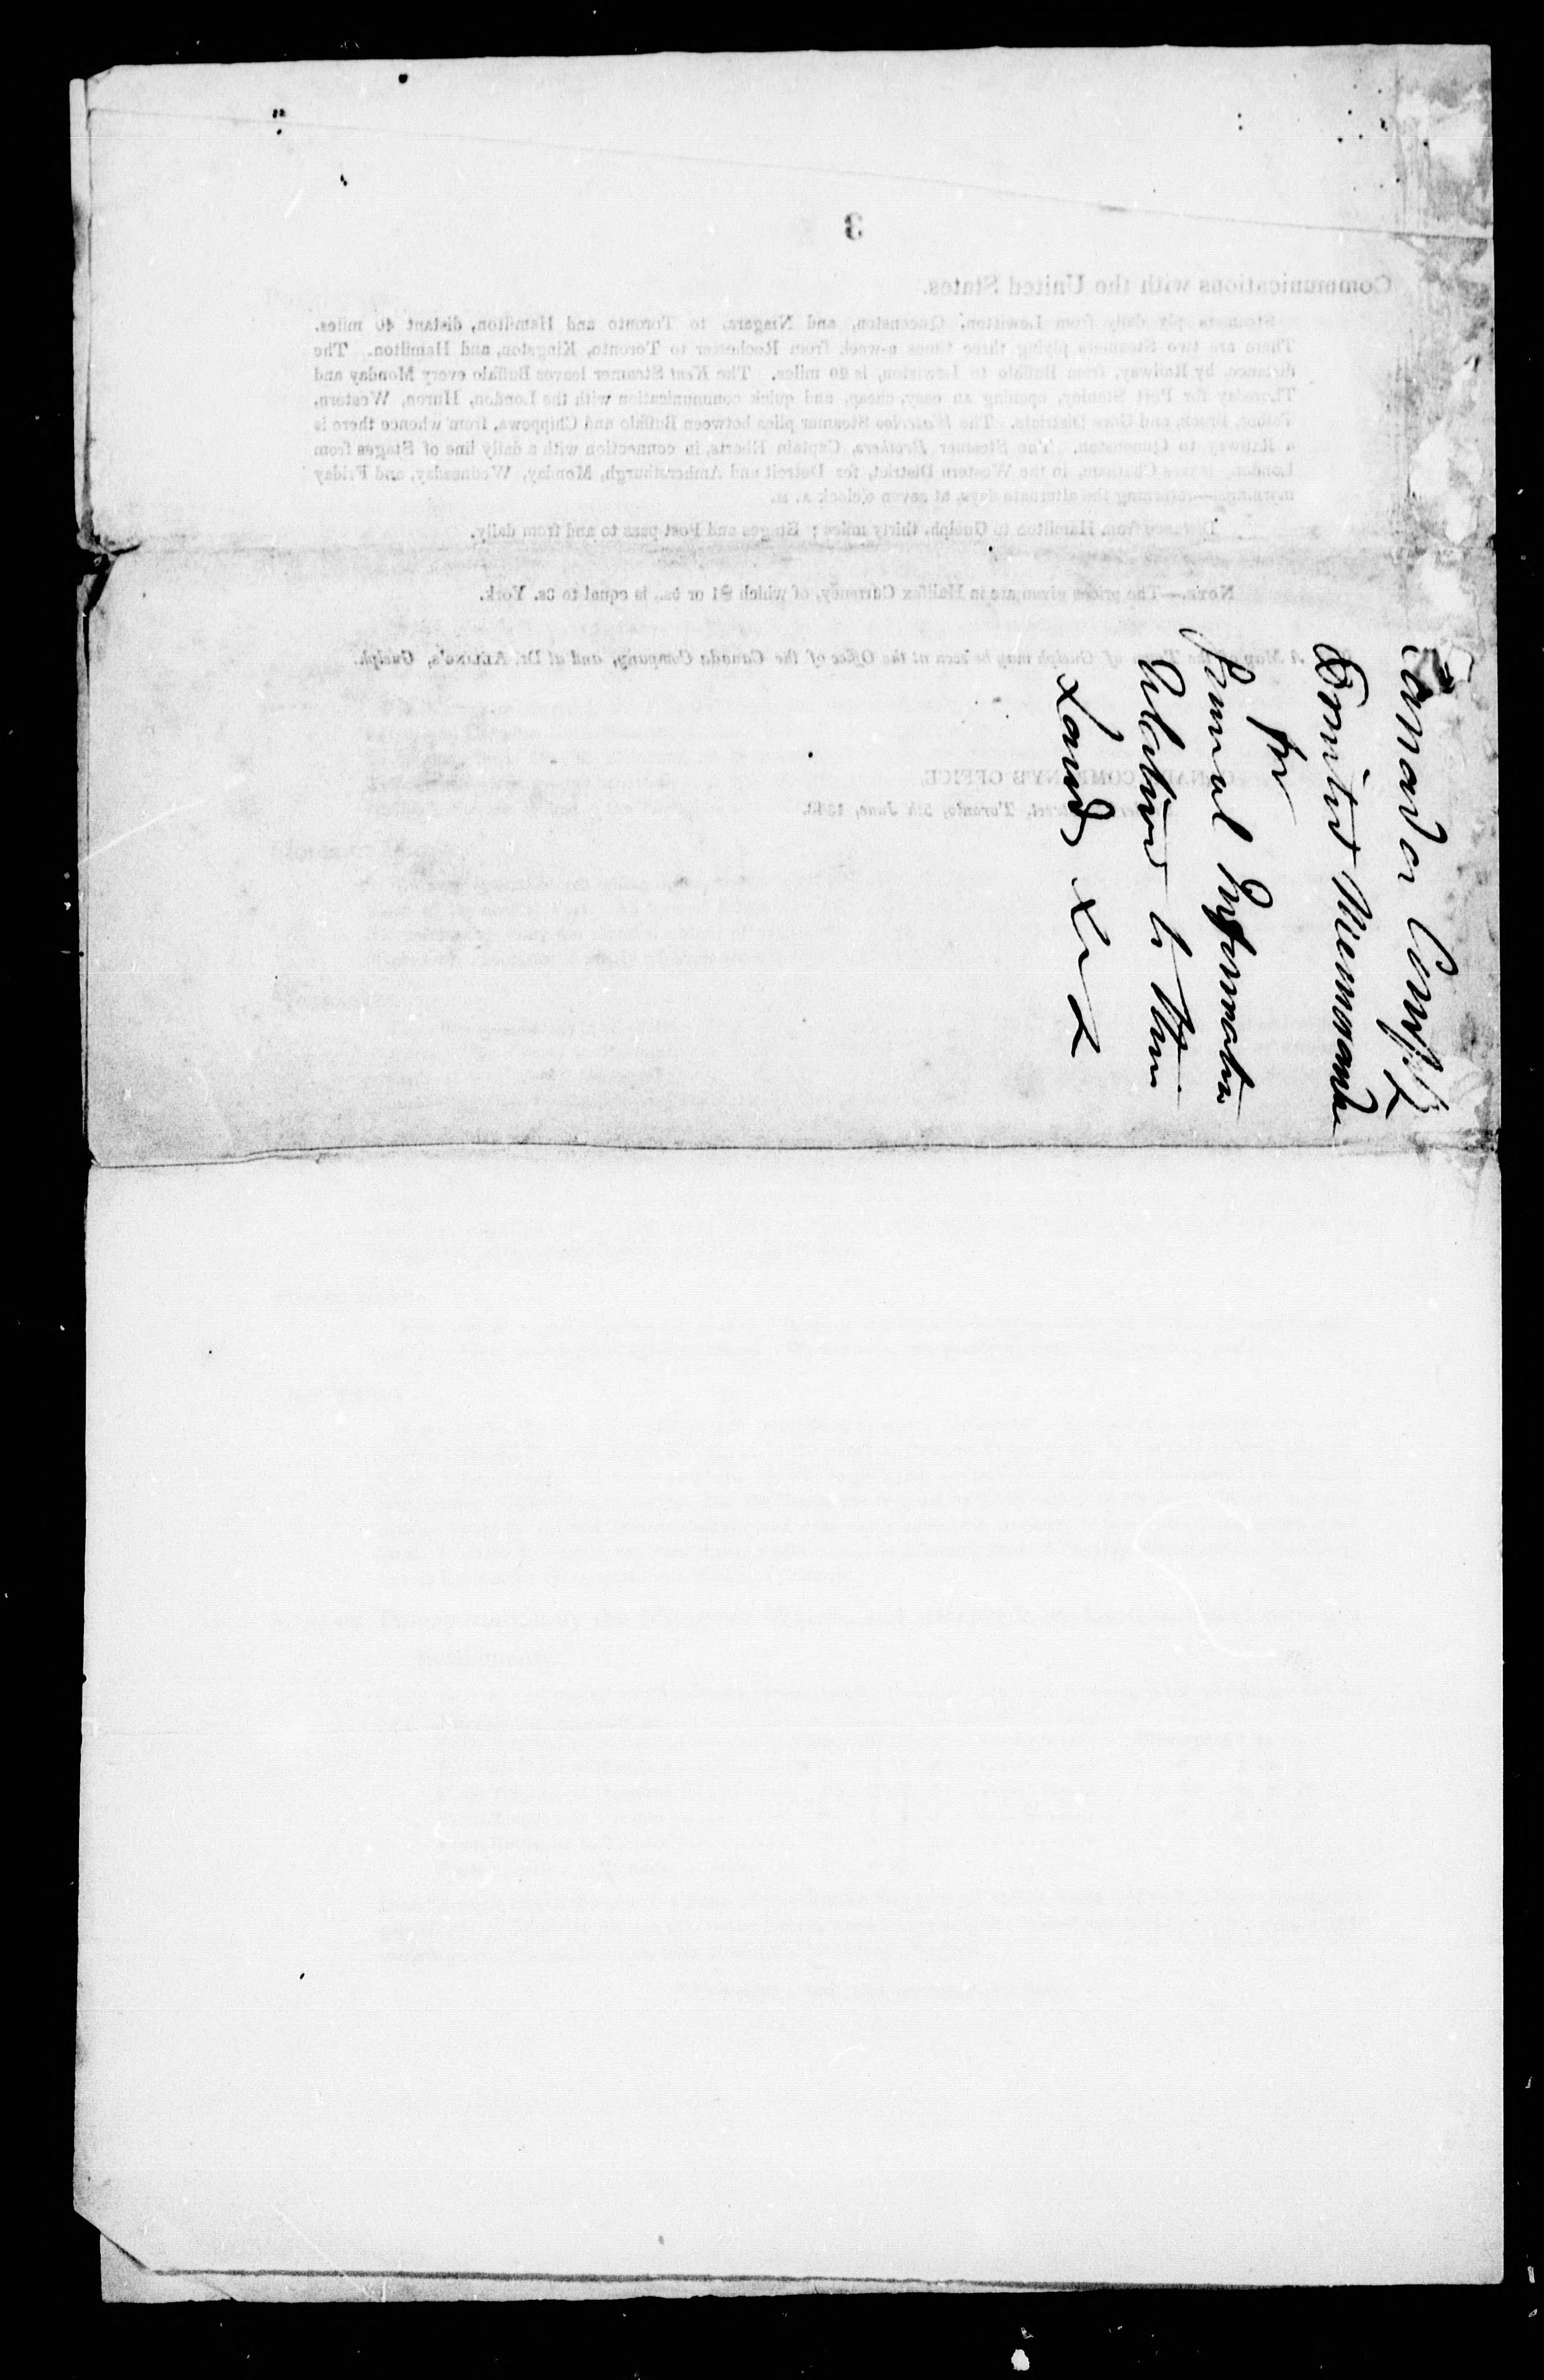 Canada Compy
Printed Memoranda
for
General Information
relative to their
Lands &c &
3
Communications with the United States.
Steamers ply daily from Lewiston, Queenston, and Niagara, to Toronto and Hamilton, distant 40 miles.
There are two Steamers plying three times a-week from Rochester to Toronto, Kingston, and Hamilton. The
distance, by Railway, from Buffalo to Lewiston, is 20 miles. The Kent Steamer leaves Buffalo every Monday and
Thursday for Port Stanley, opening an easy, cheap, and quick communication with the London, Huron, Western,
Talbot, Brock, and Gore Districts. The Waterloo Steamer plies between Buffalo and Chippewa, from whence there is
a Railway to Queenston. The Steamer Brothers, Captain Eberts, in connection with a daily line of Stages from
London, leaves Chatham, in the Western District, for Detroit and Amherstburgh, Monday, Wednesday, and Friday
morning,—returning the alternate days, at seven o'clock A. M.
Distance from Hamilton to Guelph, thirty miles; Stages and Post pass to and from daily.
NOTE.—The prices given are in Halifax Currency, of which $1 or 5s. is equal to 8s. York.
A Map of the Town of Guelph may be seen at the Office of the Canada Company, and at Dr. ALLING'S, Guelph.
CANADA COMPANY'S OFFICE,
Street, Toronto, 5th June, 1843.